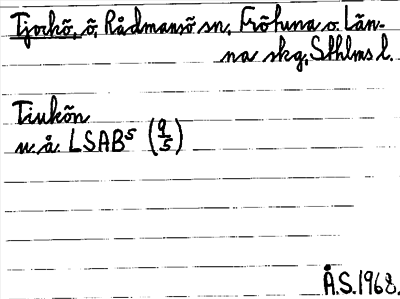 Tjockö, ö, Rådmansö sn, Fröhuna o. Län-
na skg, Sthlms l.
Tiukön
u.å. LSAB⁵ (9/5)
Å.S.1968.